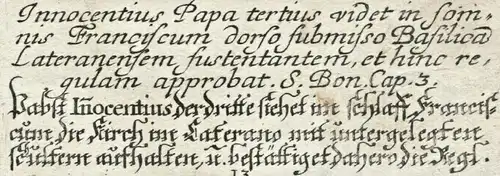 Innocentius Papa tertius videt in som-
nus Franciscum dorso submisso Basilicã
Lateranensem sustentantem, et hinc re-
gulam approbat. S. Bon. Cap. 3.
Pabst Iñocentius der dritte siehet im schlaff, Francis-
cum die Kirch im Laterano mit untergelegten
schultern aufhalten, ũ. bestättiget dahero die Regl.
13